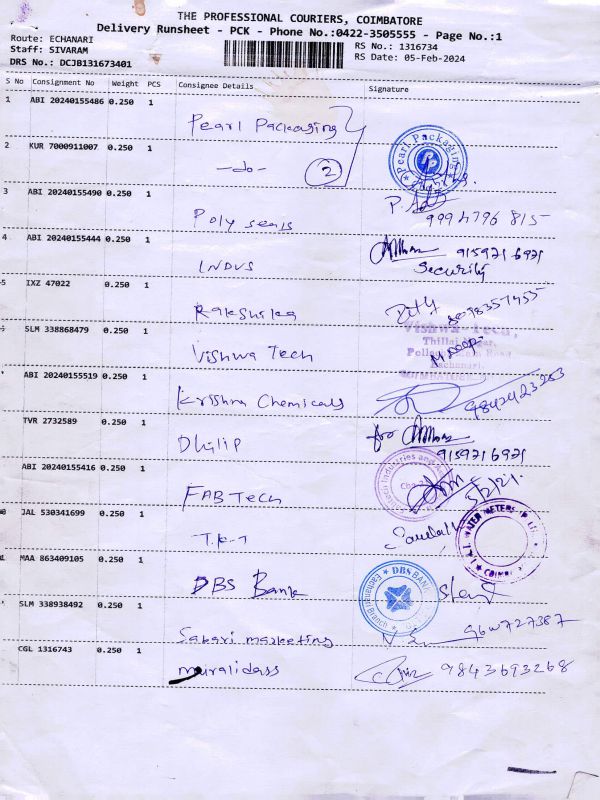 THE PROFESSIONAL COURIERS, COIMBATORE
Delivery Runsheet - PCK - Phone No.:0422-3505555 - Page No.:1
Route: ECHANARI
RS No.: 1316734
Staff: SIVARAM
RS Date: 05-Feb-2024
DRS No.: DCJB131673401
S No Consignment No Weight PCS Consignee Details Signature
1 ABI 20240155486 0.250 1
Pearl Packaging
Pearl Packaging
2 KUR 7000911007 0.250 1
-do- 2
3 ABI 20240155490 0.250 1
Poly seals
9994796815
4 ABI 20240155444 0.250 1
INDUS
9159716971
Security
5 IXZ 47022 0.250 1
Rakshika
8098357455
SLM 338868479 0.250 1
Vishwa Tech
Vishwa Tech,
Thillai Nagar,
Eachanari,
ABI 20240155519 0.250 1
Krishna Chemicals
9842423263
TVR 2732589 0.250 1
Dhilip
for
9159716971
ABI 20240155416 0.250 1
FAB Tech
5/2/21.
0 JAL 530341699 0.250 1
T.K.T
WATER METERS
MAA 863409105 0.250 1
DBS Bank
DBS BANK
Eachanari Branch
SLM 338938492 0.250 1
Sabari marketing
CGL 1316743 0.250 1
muralidass
9843693268